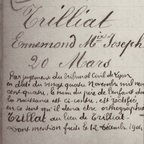 Trilliat
Ennemond Mie Joseph
20 Mars
Par jugement du tribunal Civil de Lyon
en date du vingt quatre Novembre mil neuf
cent quatre, le nom du père de l'enfant dont
la naissance est ci-contre, est rectifié,
en ce sens qu'il devra être orthographié
Trillat au lieu de Trilliat.
Dont mention faite le 12 Décembre 1904